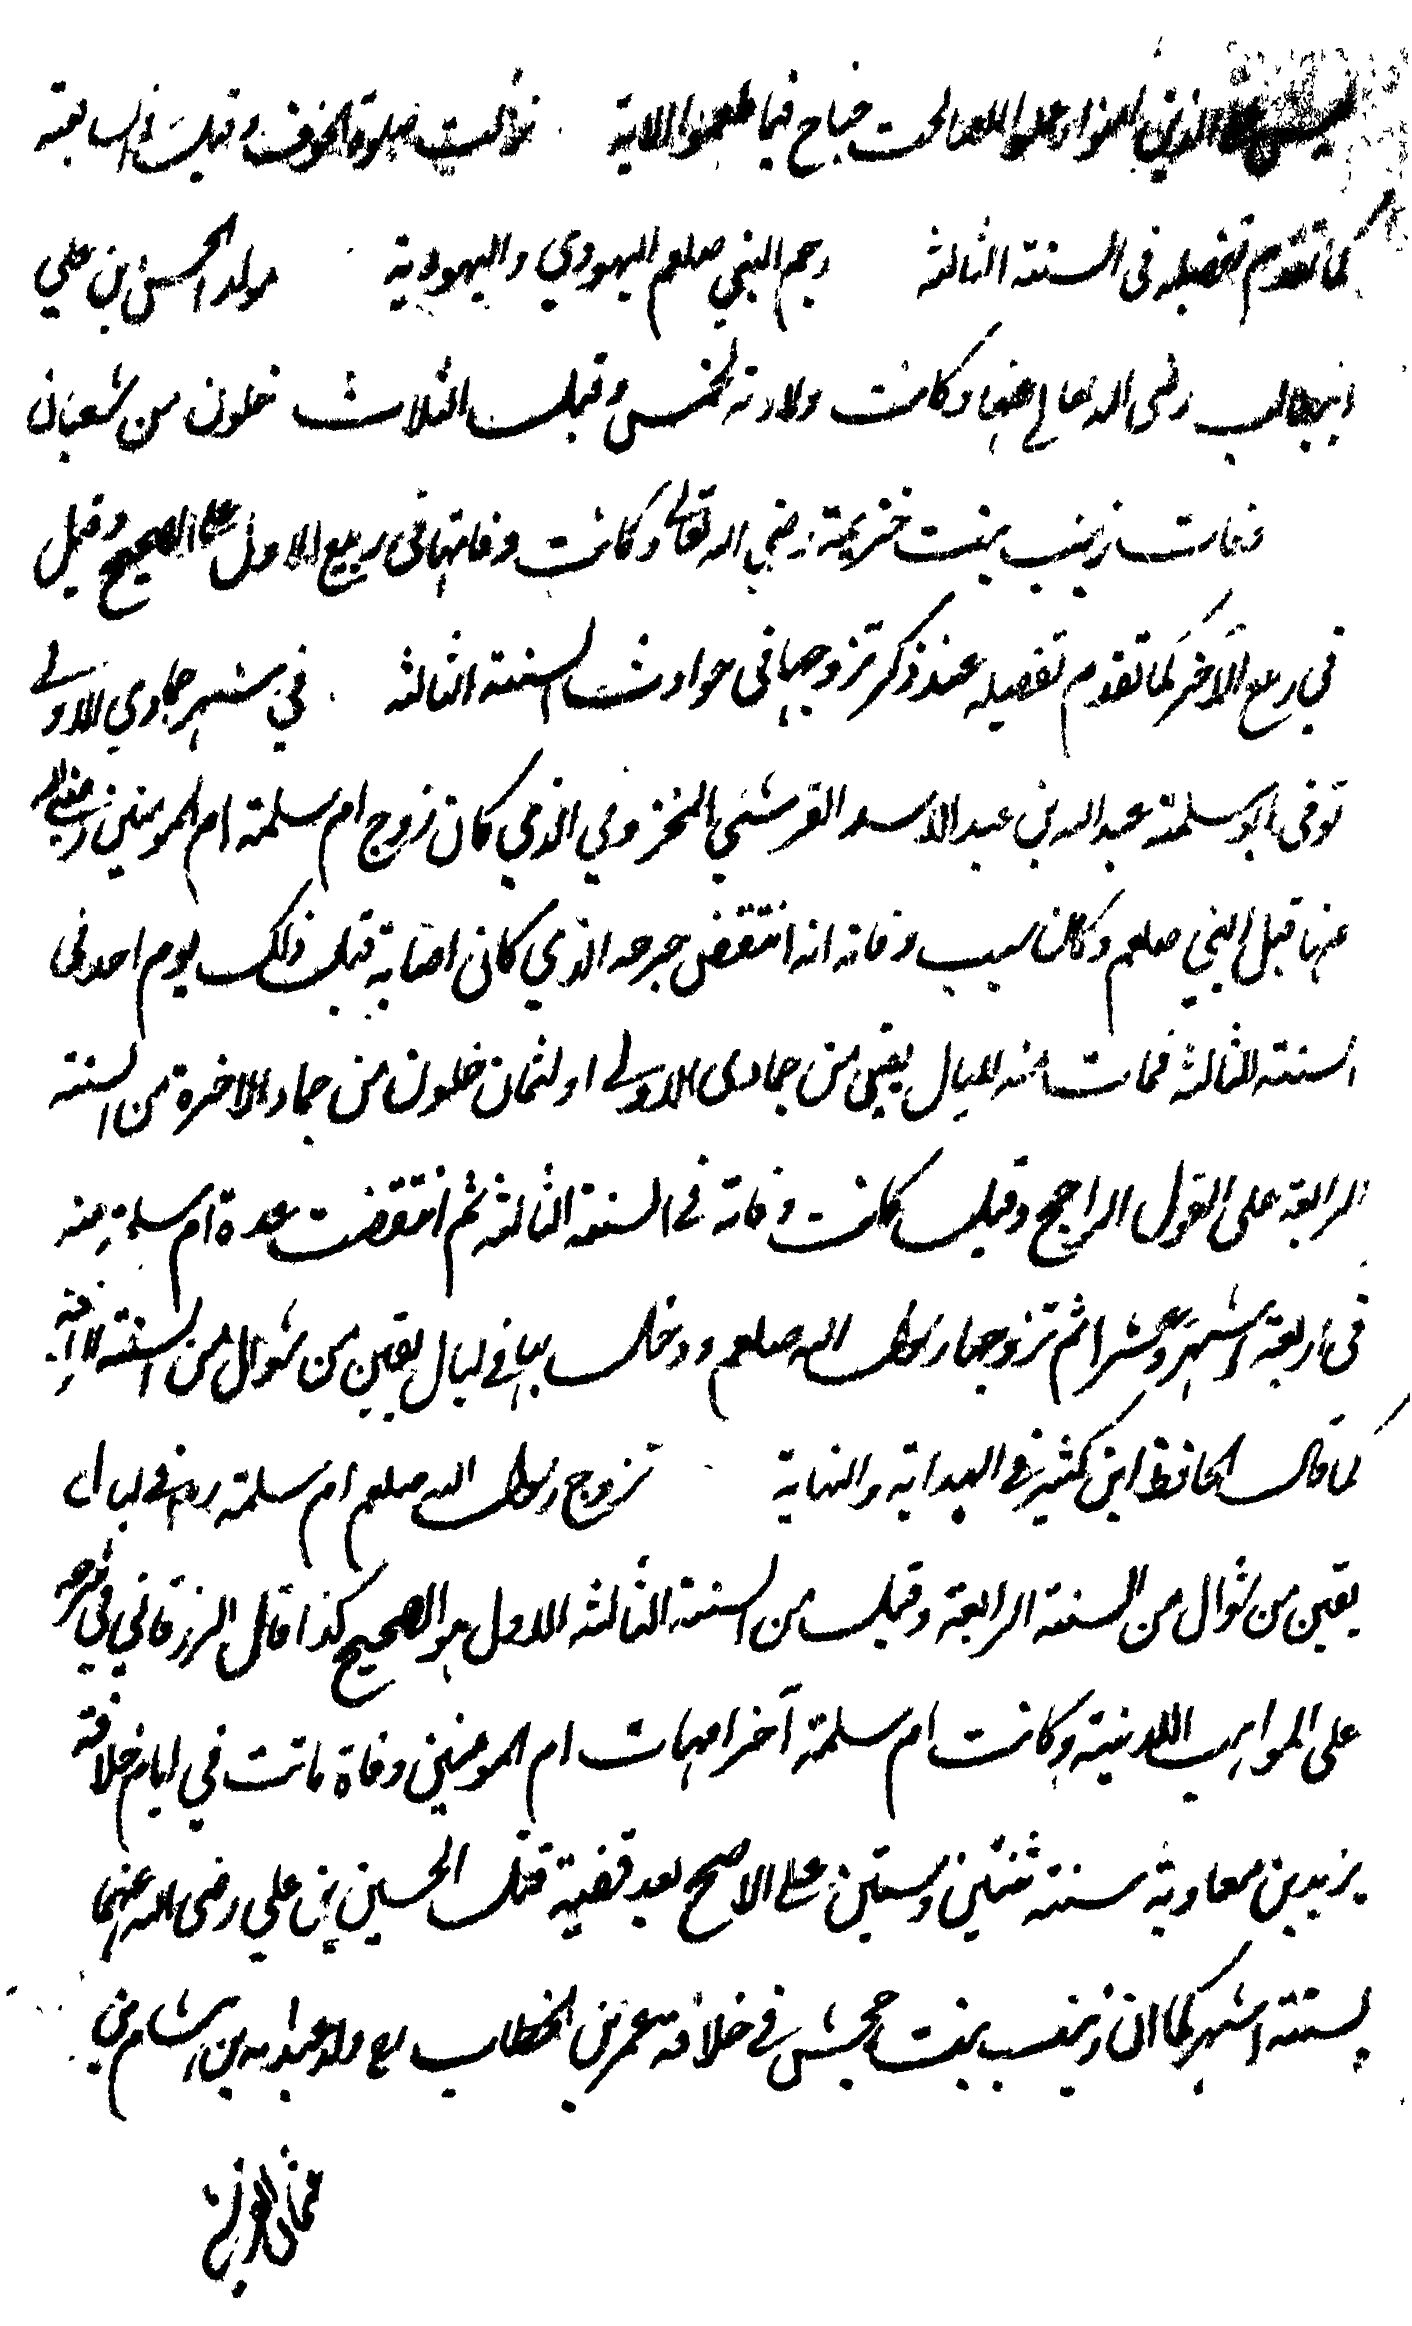 ليس على الذين امنوا وعملوا الصالحت جناح فيما طعموا الاية نزلت صلوة الخوف وقيل فى السابعة
كما تقدم تفصيله فى السنة الثالثة رجم النبي صلعم اليهودي واليهودية مولد الحسن بن علي
ابيطالب رضى الله تعالى عنهما وكانت ولادته لخمس وقيل لثلاث خلون من شعبان
وفات زينب بنت خزيمة رضي الله تعالى وكانت وفاتها فى ربيع الاول على الصحيح وقيل
في ربيع الآخر كما تقدم تفصيله عند ذكر تزوجها فى حوادث السنة الثالثة في شهر جمادي الاولى
توفى ابو سلمة عبد الله بن عبد الاسد القرشي المخزومي الذي كان زوج ام سلمة ام المومنين رضي الله
عنها قبل النبي صلعم وكان سبب وفاته انه انتقض جرحه الذي كان اصابه قبل ذلك يوم احد فى
السنة الثالثة فمات منه لليال بقين من جمادى الاولى او لثمان خلون من جماد الاخرة من السنة
الرابعة على القول الراجح وقيل كانت وفاته فى السنة الثالثة ثم انقضت عدة ام سلمة منه
فى اربعة اشهر وعشرا ثم تزوجها رسول الله صلعم ودخل بها فى ليال بقين من شوال من السنة
كما قال الحافظ ابن كثير فى البداية والنهاية تزوج رسول الله صلعم ام سلمة رض فى ليال
بقين من شوال من السنة الرابعة وقيل من السنة الثالثة الاول هو الصحيح كذا قال الزرقاني في شرحه
على المواهب اللدنية وكانت ام سلمة آخر امهات ام المومنين وفاة ماتت في ايام خلافة
يزيد بن معاوية سنة ثنتين وستين على الاصح بعد قضية قتل الحسين بن علي رضى الله عنهما
بستة اشهر كما ان زينب بنت جحش فى خلافة عمر بن الخطاب رض ولد عبد الله بن هشام بن